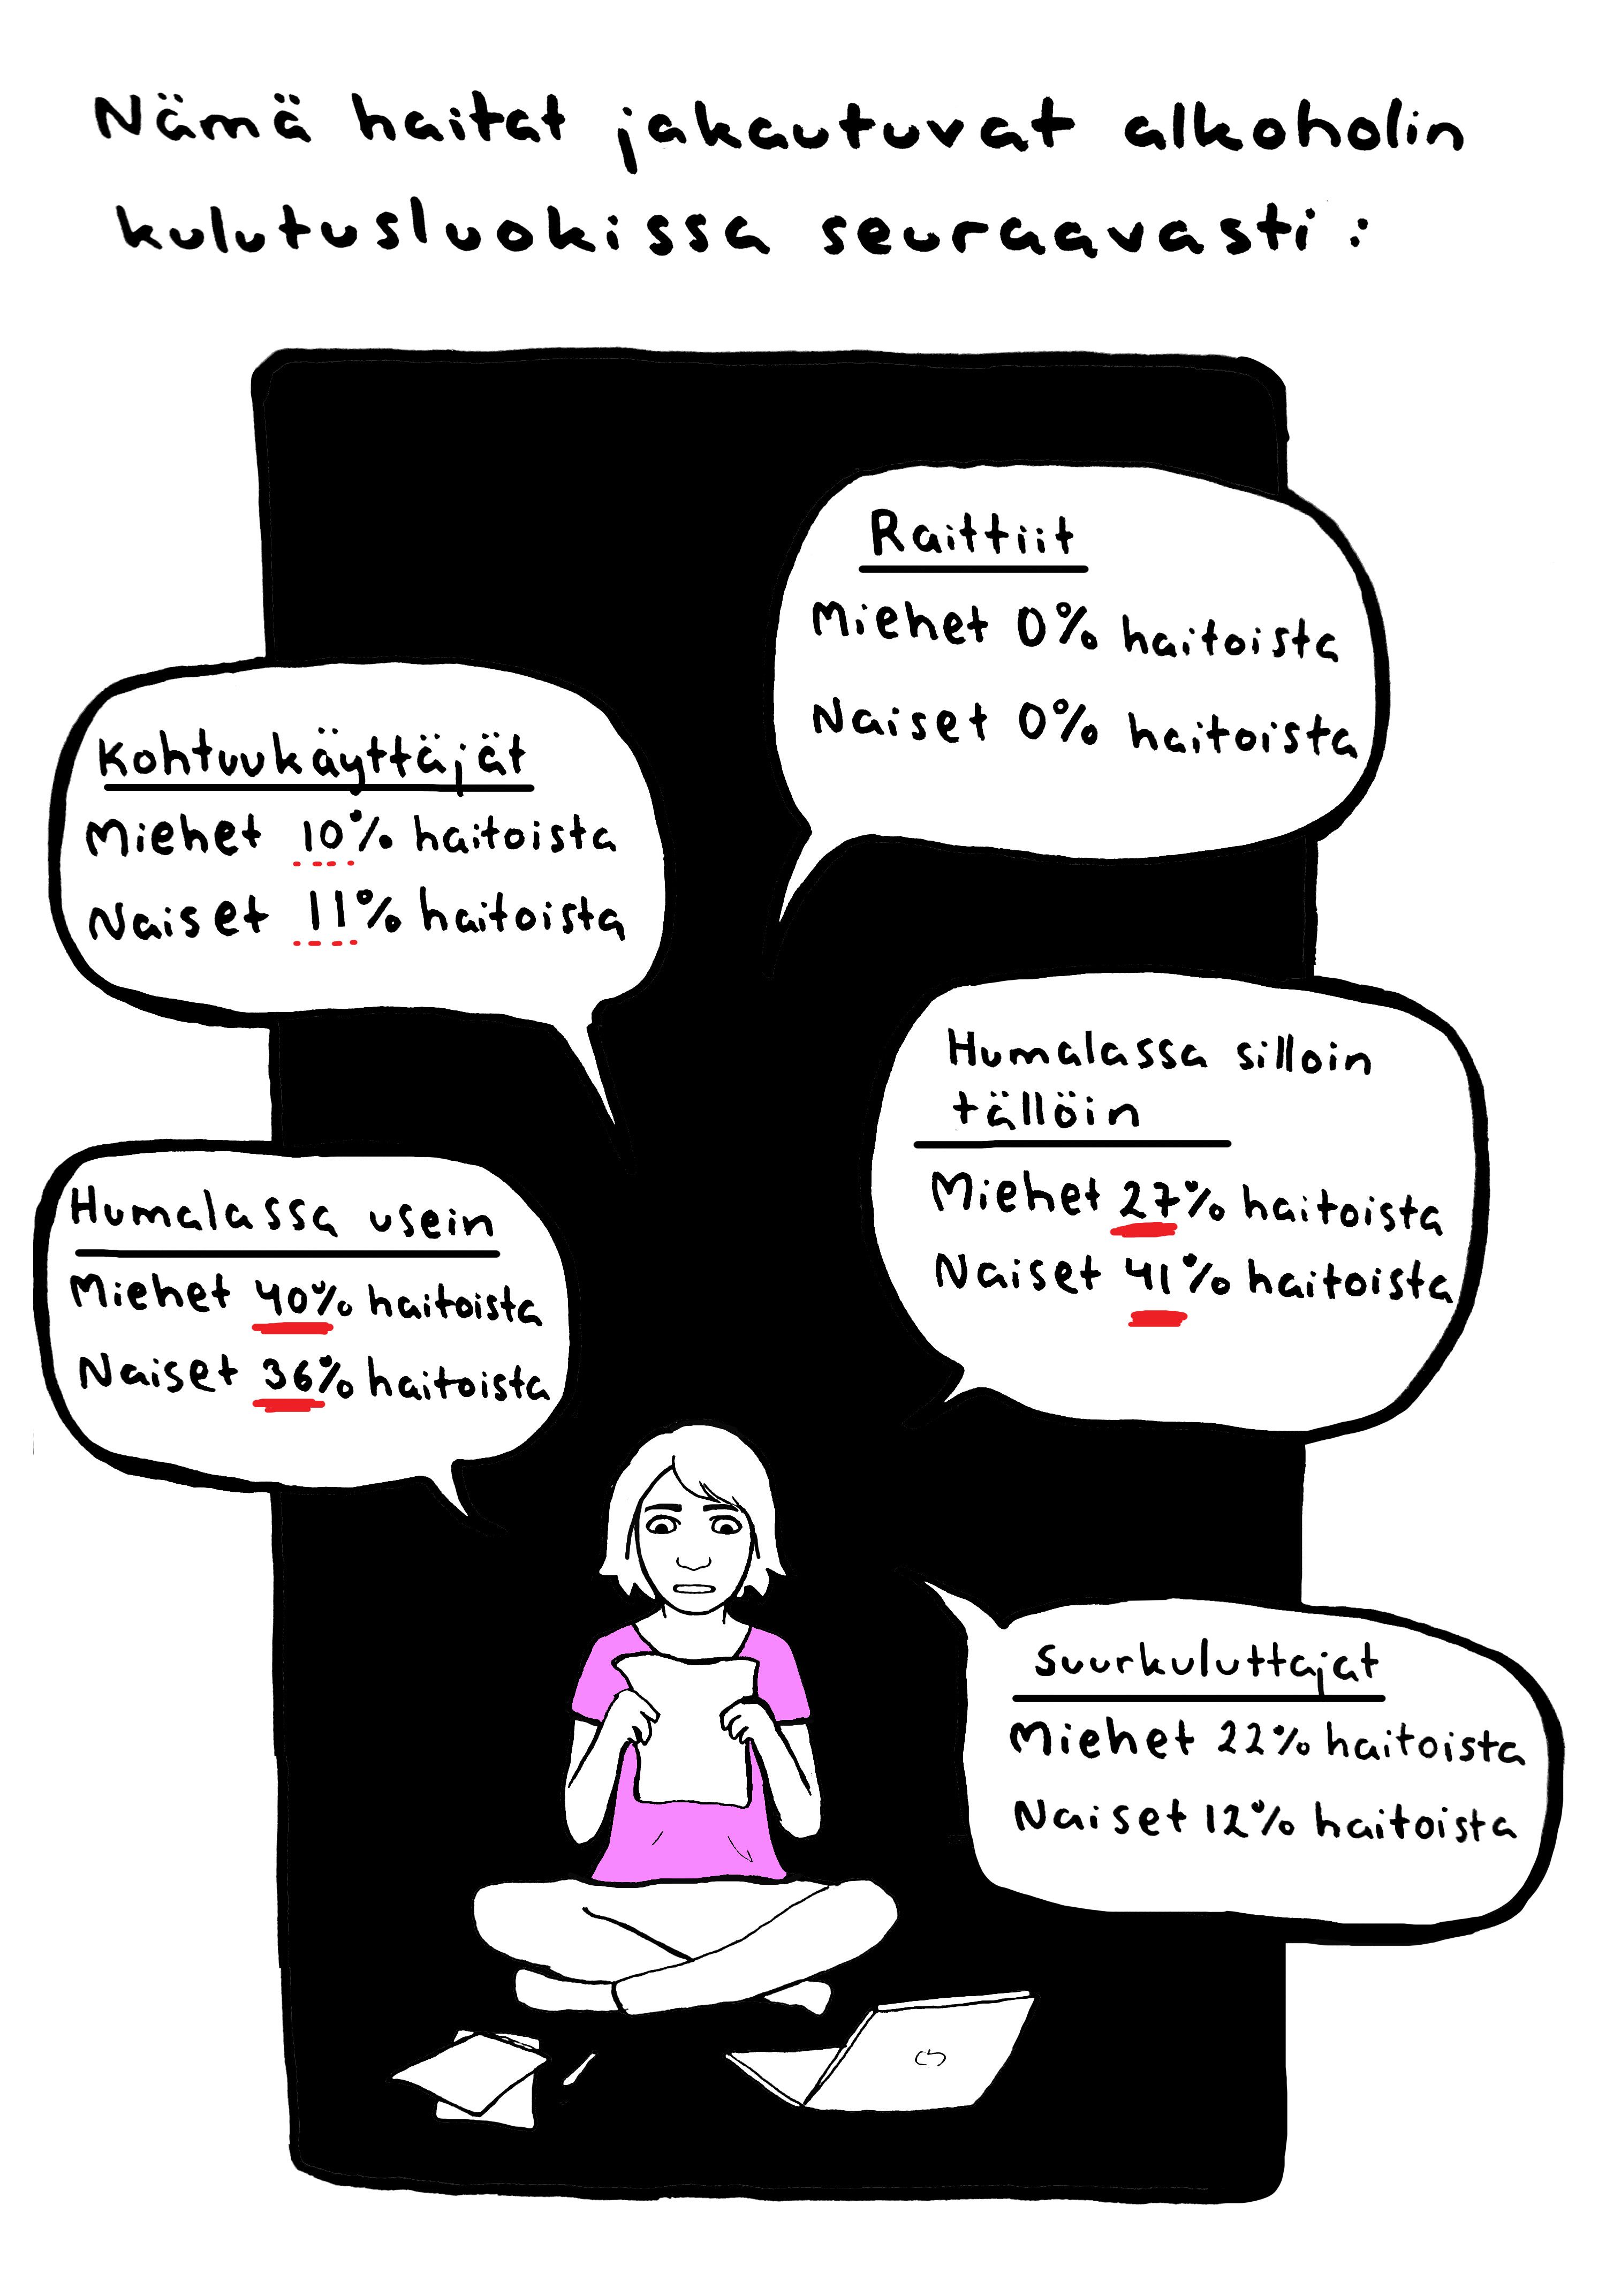 Nämä haitat jakautuvat alkoholin
kulutusluokissa seuraavasti:
Raittiit
Miehet 0% haitoista
Naiset 0% haitoista
Kohtuukäyttäjät
Miehet 10% haitoista
Naiset 11% haitoista
Humalassa silloin
tällöin
Miehet 27% haitoista
Naiset 41% haitoista
Humalassa usein
Miehet 40% haitoista
Naiset 36% haitoista
Suurkuluttajat
Miehet 22% haitoista
Naiset 12% haitoista